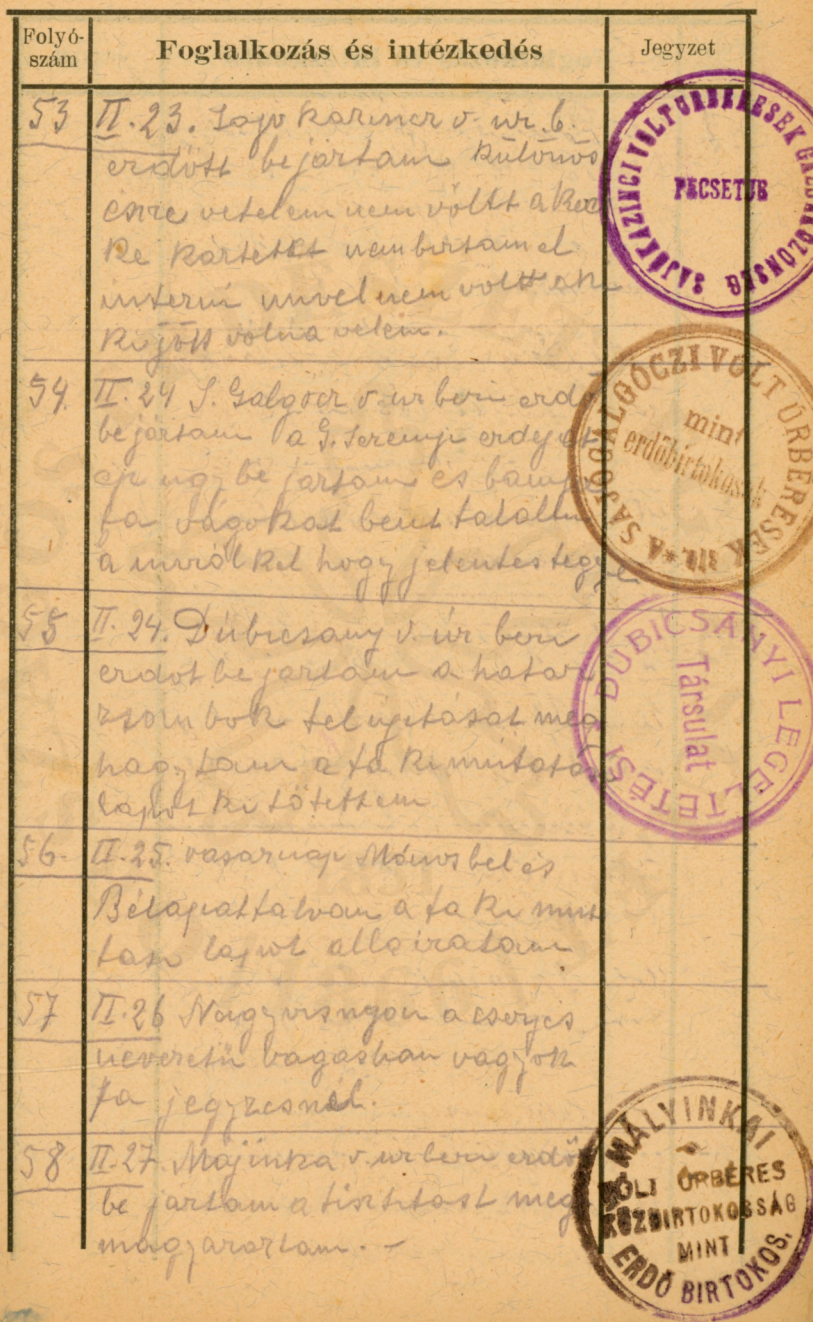 Folyó-
szám
Foglalkozás és intézkedés
Jegyzet
53 II. 23. Sajo v. ur. b.
erdött bejártam különös
észre vetelem nem vóltt a kecs
ke kártettt nem birtam el
interni mivel nem voltt aki
ki jött volna velem.
SAJÓKAZINCI VOLT URBÉRESEK
PECSETJE
54. II. 24 S. Galgócz v. ur beri erdő
bejártam a G. Serenyi erdejét
ep ugy be jártam és
fa vágokat bent talált
a miról kel hogy jelentes tegye
A SAJÓGALGÓCZI VOLT ÚRBÉRESEK
mint
erdőbirtokosok
55 II. 24. Dúbicsany v. úr beri
erdot be jartam a hatar
zsombok felujitását meg
hagytam a fa kimutatás
lapot ki tötettem
DUBICSÁNYI LEGELTETÉSI
Társulat
56. II. 25. vasarnap Mónosbel és
Bélapatfalvan a fa ki mut
tasi lapot alláiratam
57 II. 26 Nagyvisnyon a
nevezetü vagásban vagyok
fa jegyzesnél.
58 II. 27. Majinka v. urberi erdő
be jártam a tisztitast meg
magyaraztam. -
MÁLYINKAI
VOLT ÚRBÉRES
KÖZBIRTOKOSSÁG
MINT
ERDŐ BIRTOKOS.